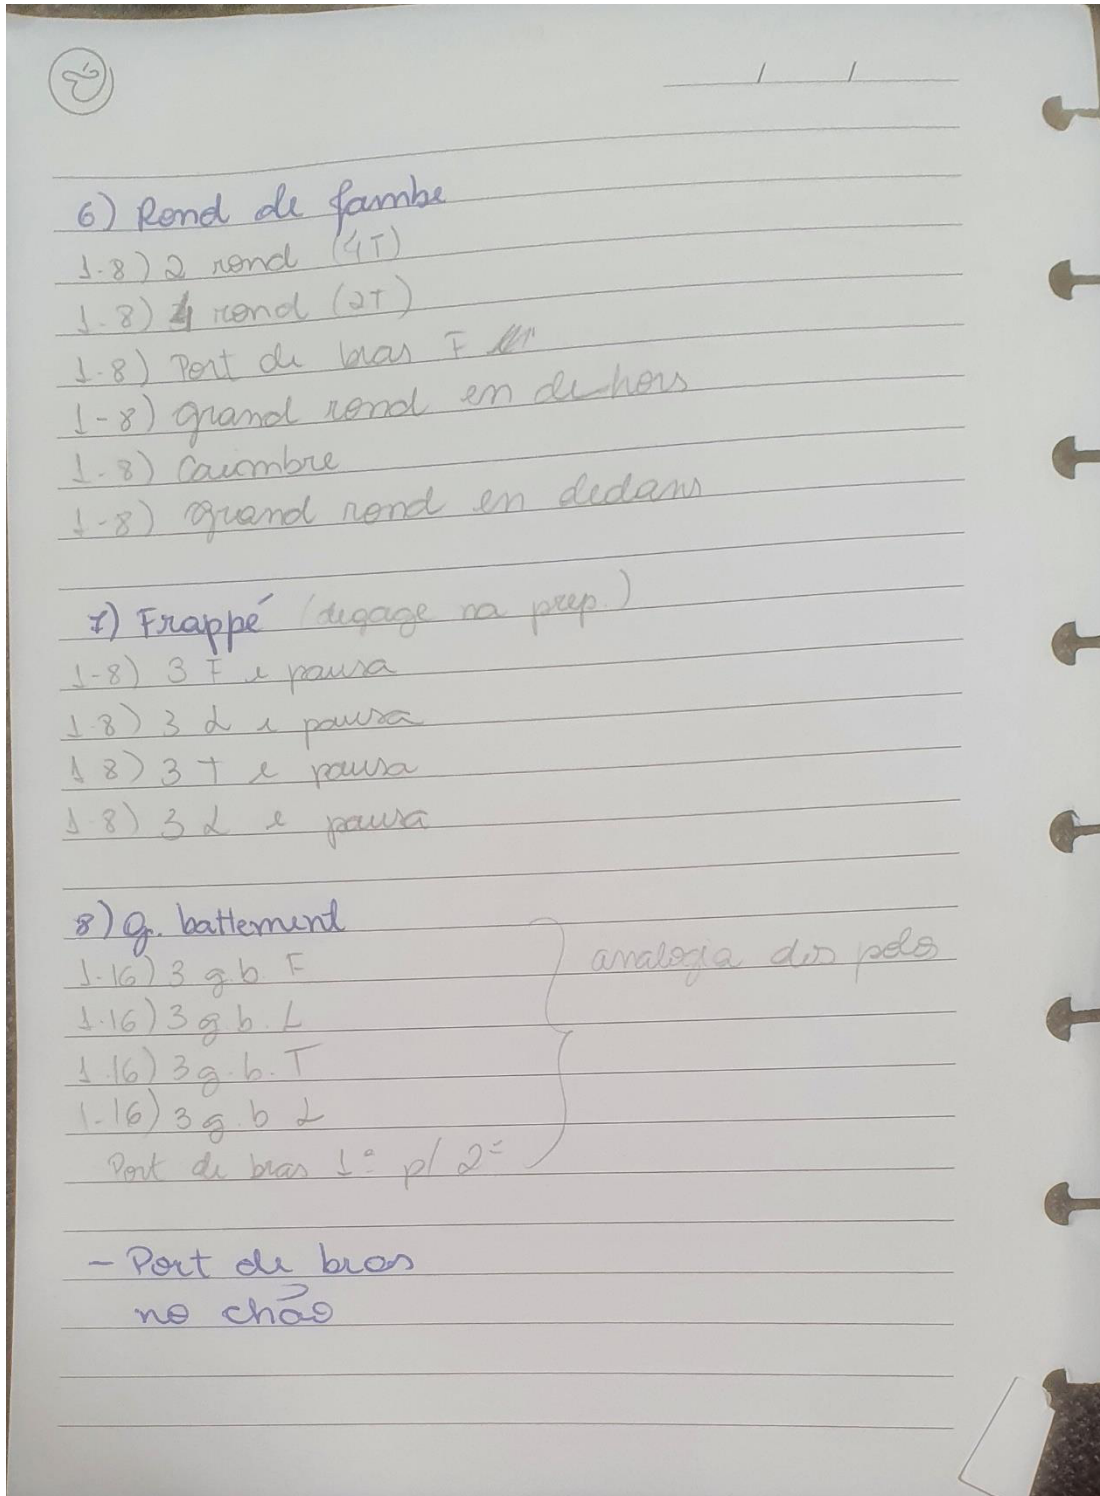 6) Rond de jambe
1-8) 2 rond (4T)
1-8) 4 rond (2T)
1-8) Port de bras F
1-8) grand rond en dehors
1-8) Caumbre
1-8) grand rond en dedans
7) Frappé (degage na prep.)
1-8) 3 F e pausa
1-8) 3 L e pausa
1 8) 3 T e pausa
1 8) 3 L e pausa
8) g. battement
1-16) 3 g.b. F
1-16) 3 g.b. L analogia dos
1-16) 3 g.b. T
1-16) 3 g.b L
Port de bras 1ª p/ 2ª
- Port de bras
no chão